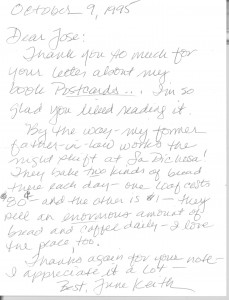 October 9, 1995
Dear Jose:
Thank you so much for
your letter about my
book Postcards... I'm so
glad you liked reading it.
By the way - my former
father-in-law works the
night shift at La Dichosa!
They bake two kinds of bread
there each day - one loaf costs
80¢ and the other is $1 - they
sell an enormous amount of
bread and coffee daily - I love
the place, too.
Thanks again for your note -
I appreciate it a lot -
Best, June Keith